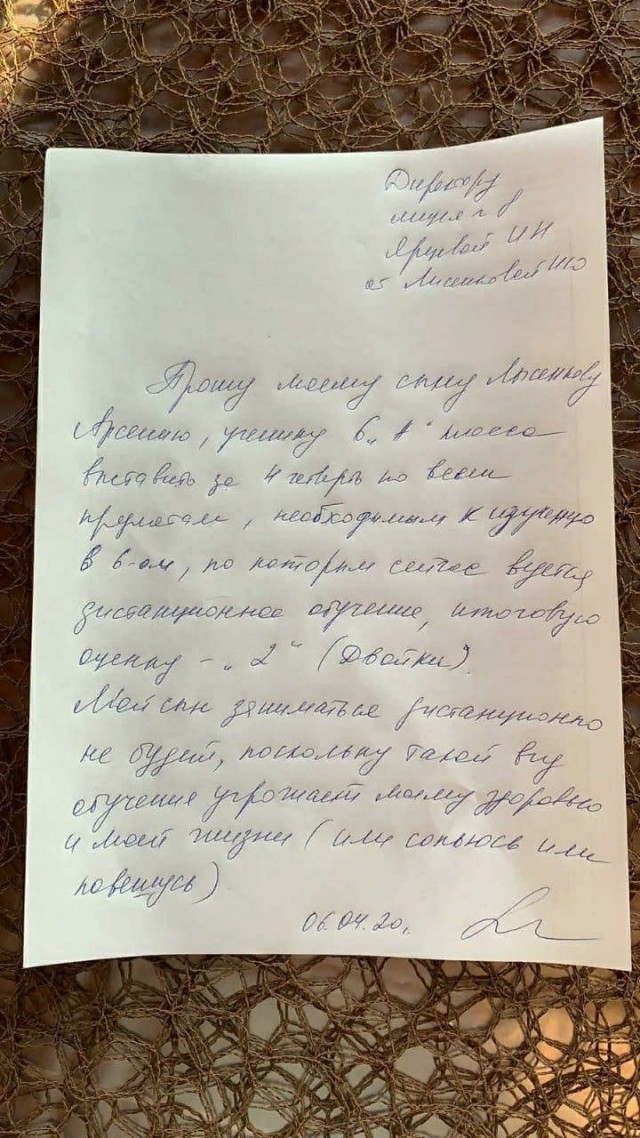 Директору
лицея n 8
Ярцевой ИН
от Лысенковой НЮ
Прошу моему сыну Лысенкову
Арсению, ученику 6 „А" класса
выставить за 4 четверть по всем
предметам, необходимым к изучению
в 6-ом, по которым сейчас ведется
дистанционное обучение, итоговую
оценку - „2" (Двойки).
Мой сын заниматься дистанционно
не будет, поскольку такой вид
обучения угрожает моему здоровью
и моей жизни (или сопьюсь или
повешусь)
06.04.20г.